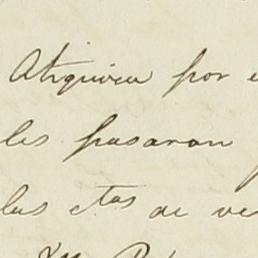 Atiquivu por e
les pasaron
las ctas de ve